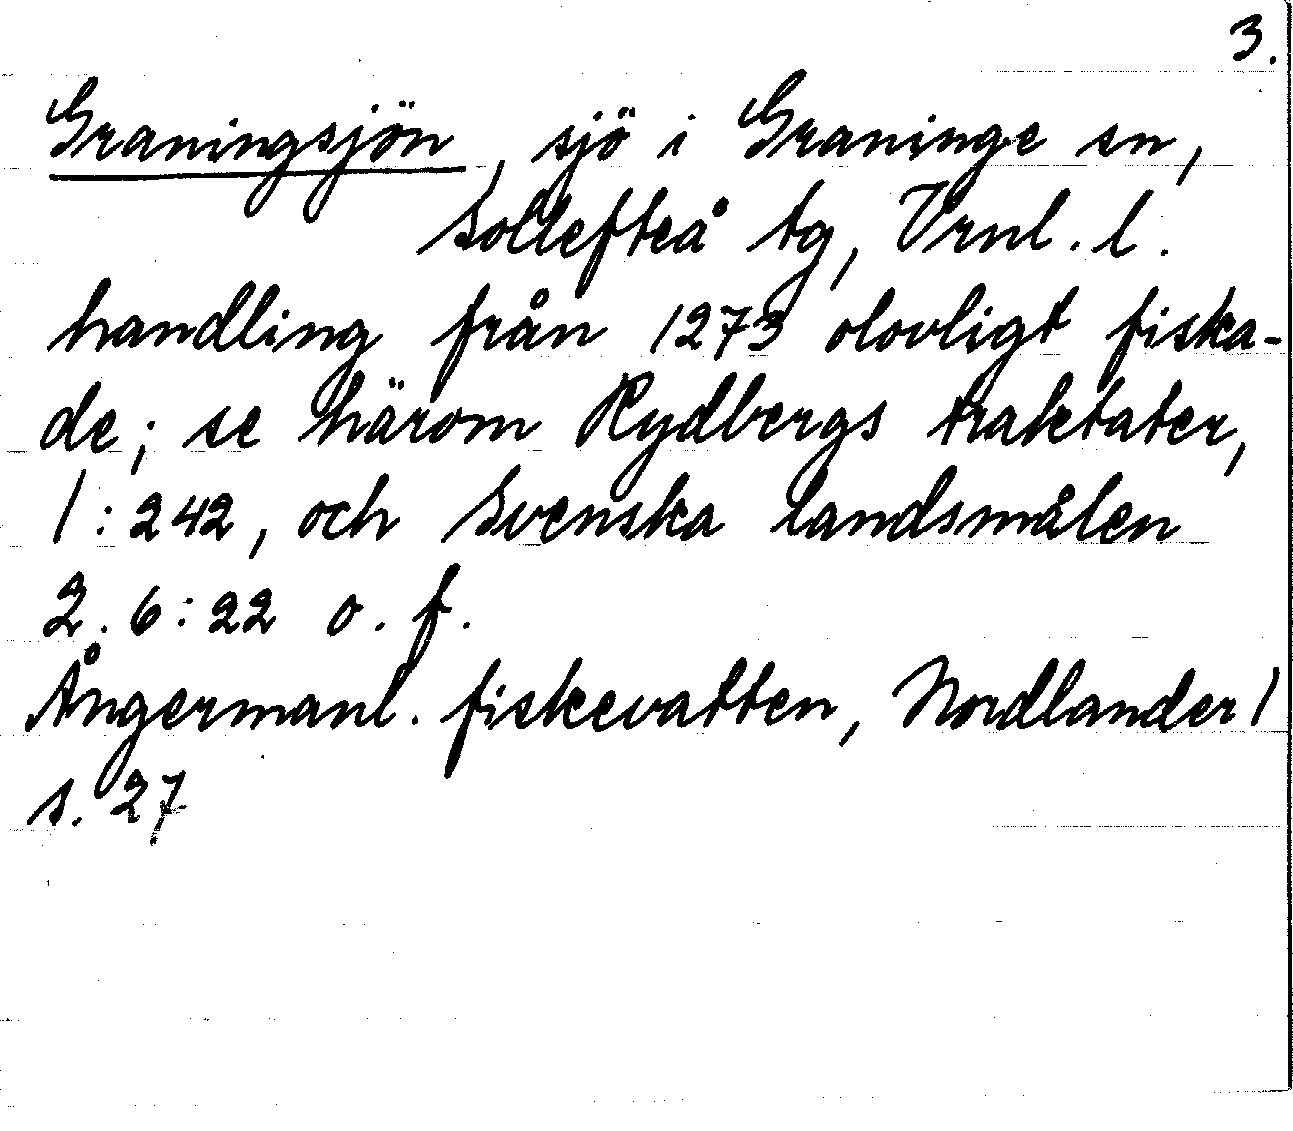 3.
Graningsjön, sjö i Graninge sn,
Sollefteå tg, Vrnl. l.
handling från 1273 olovligt fiska-
de; se härom Rydbergs traktater,
1:242, och Svenska landsmålen
2. 6:22 o. f.
Ångermanl. fiskevatten, Nordlander 1
s. 27